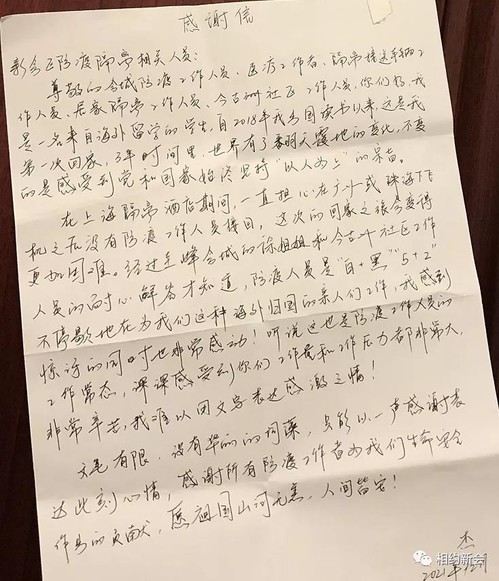 感谢信
新会区防疫隔离相关人员：
尊敬的会城防疫工作人员、医疗工作者、隔离接送车辆工
作人员、居家隔离工作人员、今古洲社区工作人员，你们好，我
是一名来自海外留学的学生，自2018年我出国读书以来，这是我
第一次回家，3年时间里，世界有了翻天覆地的变化，不变
的是感受到党和国家始终坚持“以人为上”的宗旨。
在上海隔离酒店期间，一直担心在广州或珠海下飞
机之后没有防疫工作人员接回，这次的回家之旅会变得
更加困难。经过连峰会城的徐姐姐和今古洲社区工作
人员的耐心解答才知道，防疫人员是“白+黑”“5+2”
不停歇地在为我们这种海外归国的亲人们工作，我感到
惊讶的同时也非常感动！听说这也是防疫工作人员的
工作常态，深深感受到你们工作量和工作压力都非常大，
非常辛苦，我难以用文字表达感激之情！
文笔有限，没有华丽的词藻，只能以一声感谢表
达此刻心情，感谢所有防疫工作者为我们生命安全
作出的贡献，愿祖国山河无恙，人间皆安！
杰
2021年12月
相约新会